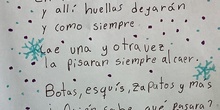 y allí huellas dejarán
y como siempre
Cae una y otra vez
la pisaran siempre al caer.
Botas, esquís, zapatos y más
sabe qué pasara